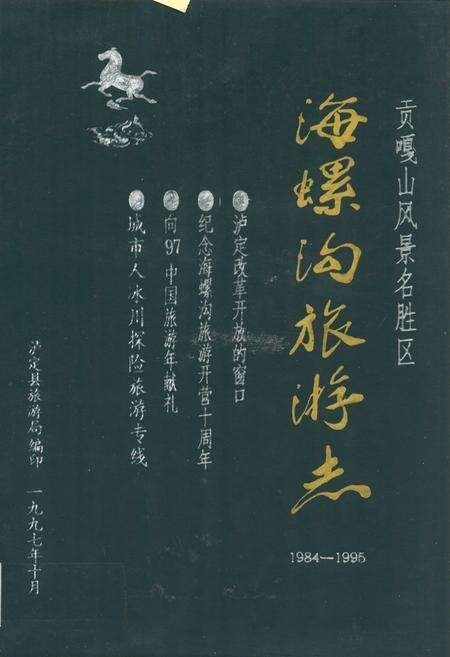 贡嘎山风景名胜区
海螺沟旅游志
1984—1995
泸定改革开放的窗口
纪念海螺沟旅游开营十周年
向97中国旅游年献礼
城市人冰川探险旅游专线
泸定县旅游局编印
一九九七年十月